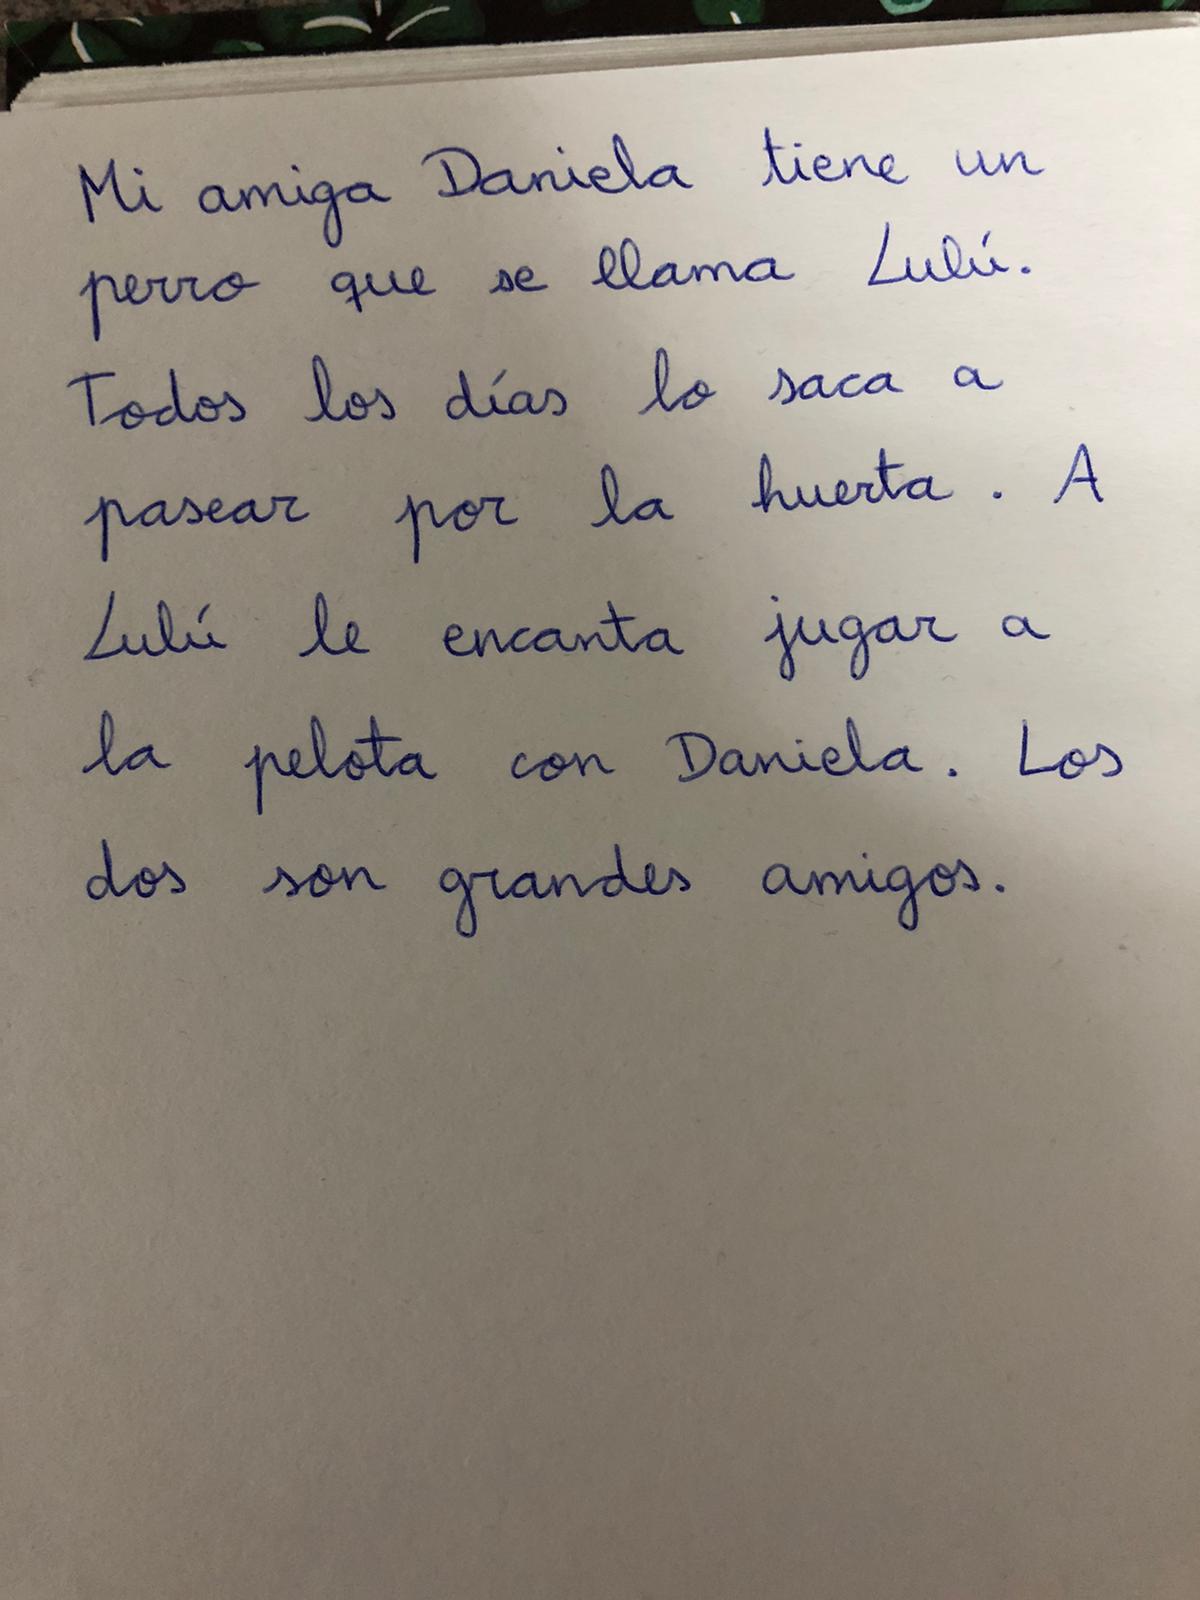 Mi amiga Daniela tiene un
perro que se llama Lulú.
Todos los días lo saca a
pasear por la huerta. A
Lulú le encanta jugar a
la pelota con Daniela. Los
dos son grandes amigos.